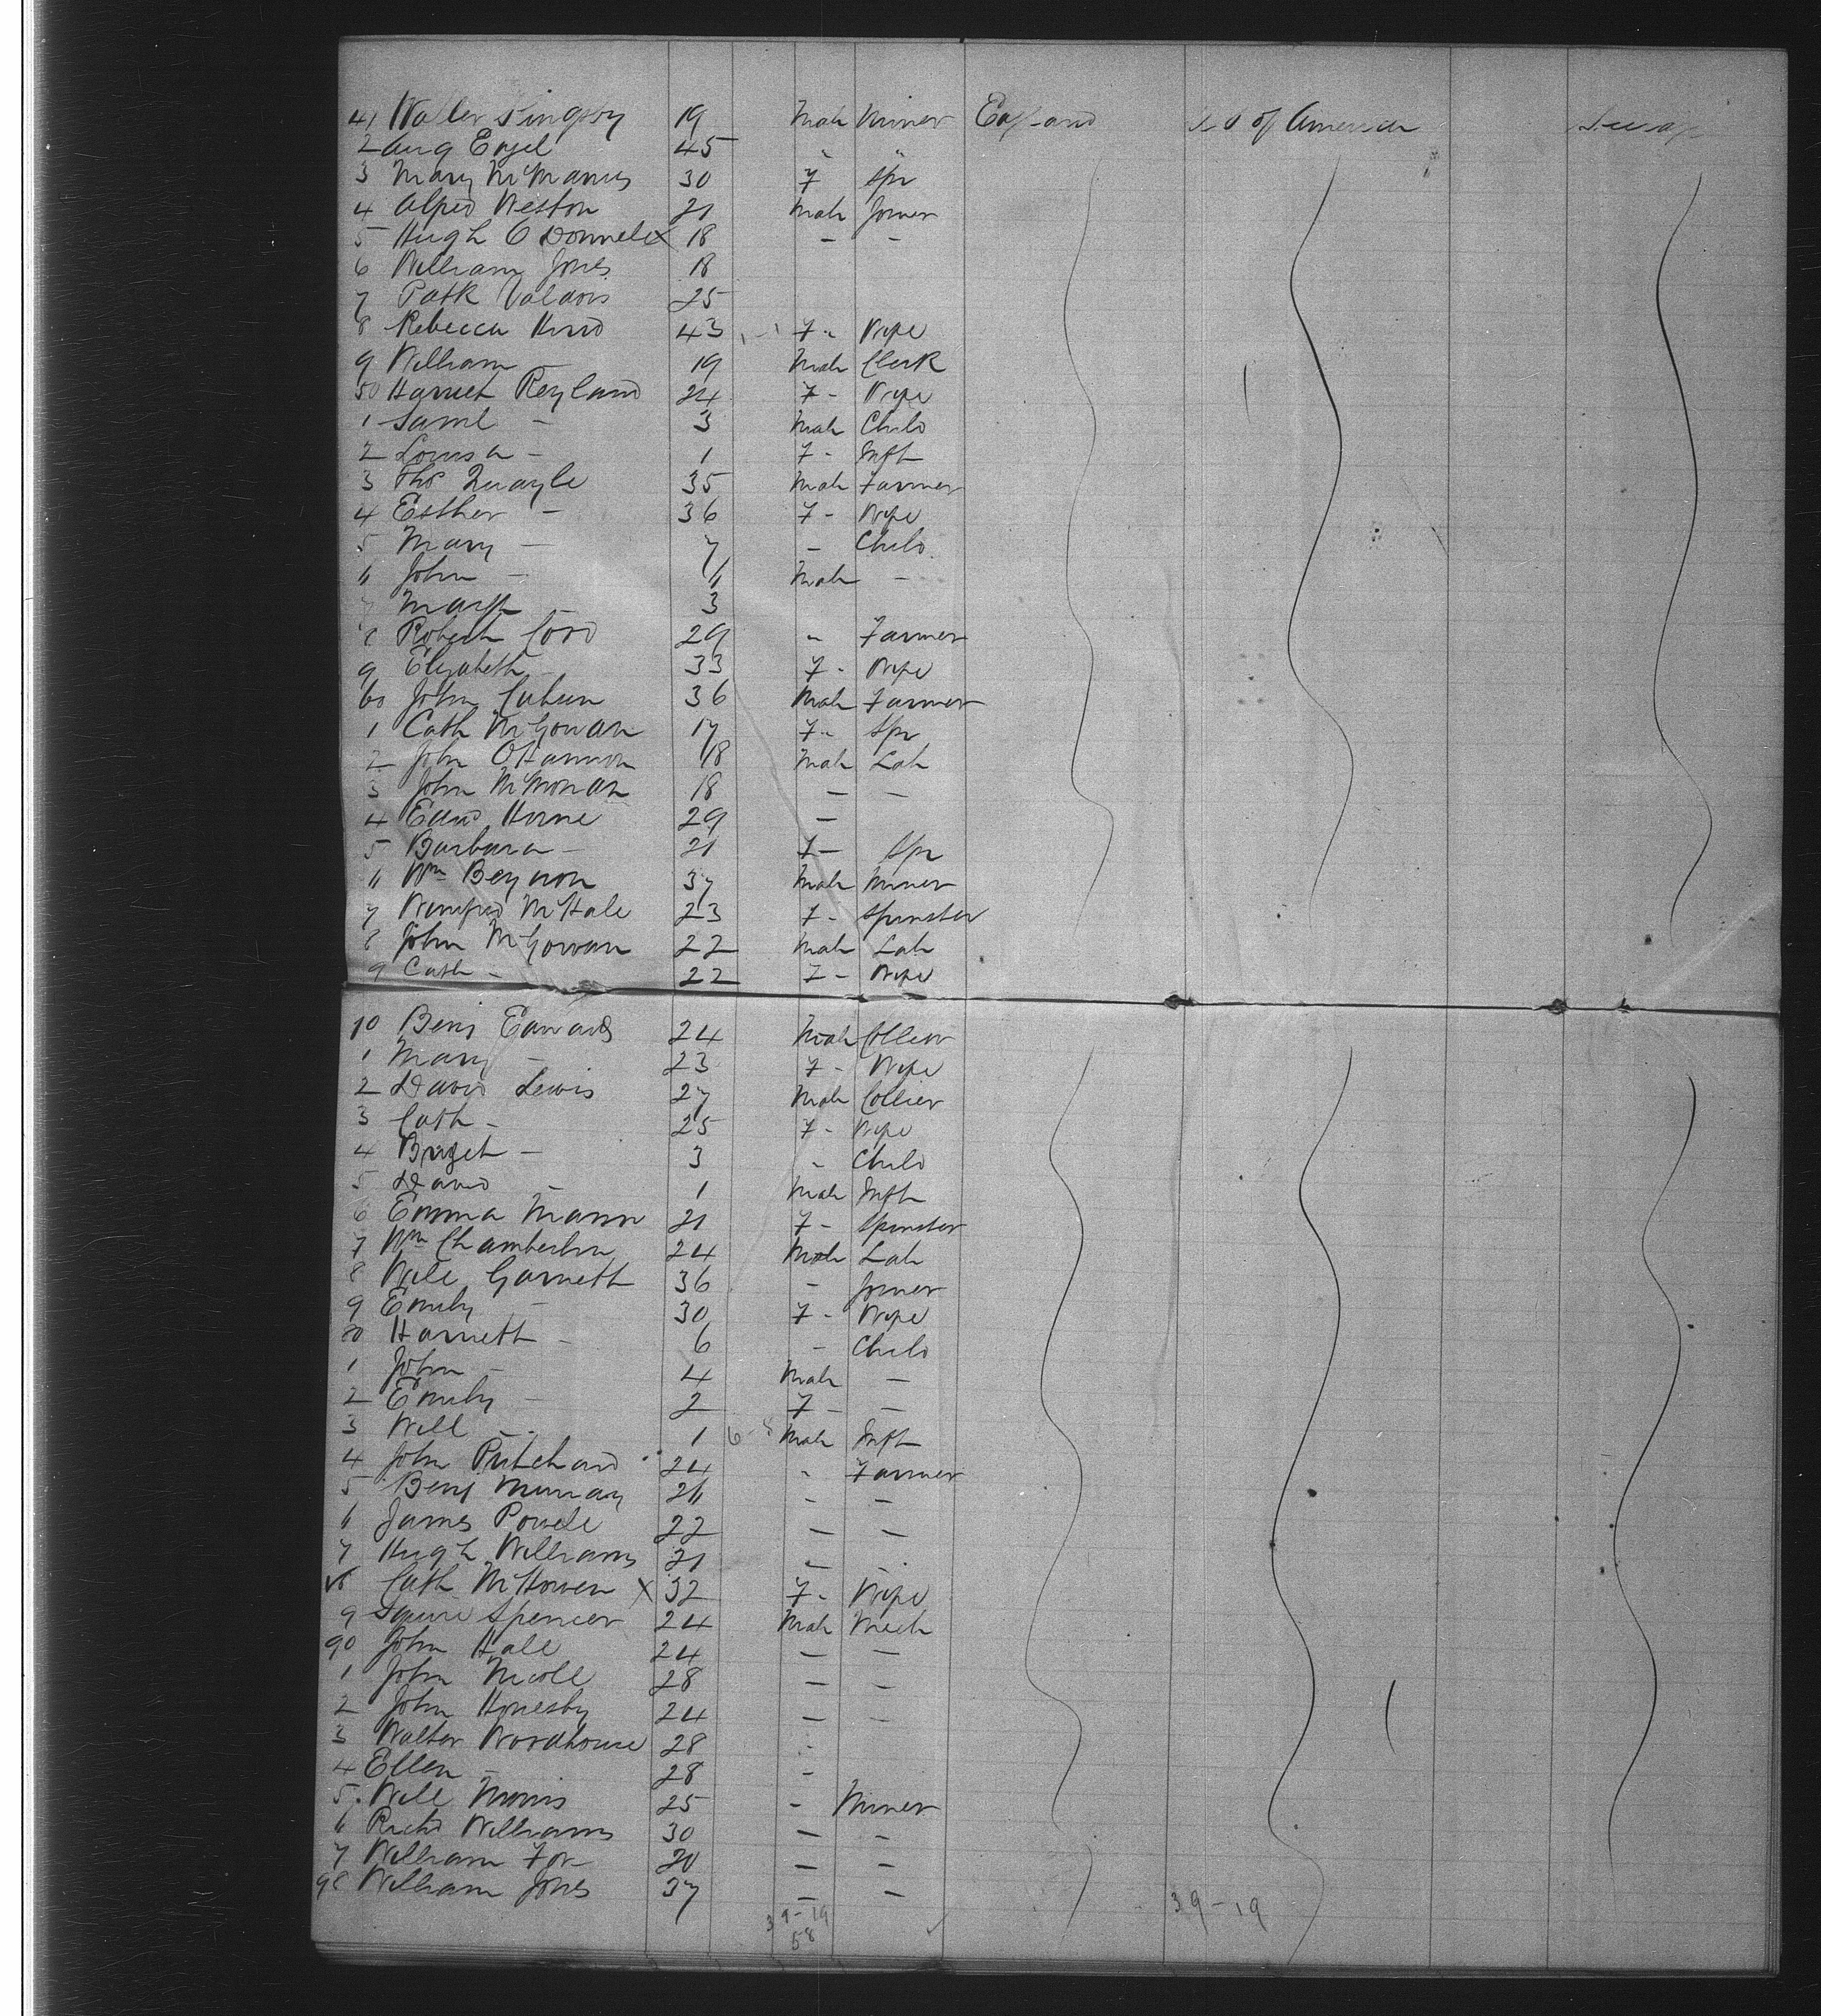 41 Walter 19 Male Miner England U S of America Steerage
2 Aug Engel 45 " "
3 Mary McManus 30 F Spr
4 Alfred Weston 21 Male Joiner
5 Hugh O Donnell X 18 - -
6 William Jones 18
7 Patk 25
8 Rebecca Hird 43 F " Wife
9 William - 19 Male Clerk
50 Harriet Reyland 24 F - Wife
1 Saml - 3 Male Child
2 Louisa - 1 F - Inft
3 Thos Quayle 35 Male Farmer
4 Esther - 36 F - Wife
5 Mary - 7 - Child
6 John - 6 Male -
7 Margt 3
8 Robert Cord 29 " Farmer
9 Elizabeth - 33 F - Wife
60 John 36 Male Farmer
1 Cath McGowan 17 F " Spr
2 John OHannon 18 Male Lab
3 John 18 - -
4 Edwd Horne 29 -
5 Barbara - 21 F - Spr
6 Wm Beynon 37 Male Miner
7 Winifred McHale 23 F - Spinster
8 John McGowan 22 Male Lab
9 Cath - 22 F - Wife
70 Benj Edwards 24 Male Collier
1 Mary - 23 F - Wife
2 David Lewis 27 Male Collier
3 Cath - 25 F - Wife
4 Bridget - 3 " Child
5 David - 1 Male Inft
6 Emma Mann 21 F - Spinster
7 Wm Chamberlin 24 Male Lab
8 Will Garnett 36 - Joiner
9 Emily - 30 F - Wife
80 Harriett - 6 - Child
1 John - 4 Male -
2 Emily - 2 F - -
3 Will - 1 Male Inft
4 John Pritchard 24 " Farmer
5 Benj Murray 26 - -
6 James Powell 22 - -
7 Hugh Williams 21 - -
8 Cath X 32 F - Wife
9 Squire Spencer 24 Male Mech
90 John Hall 24 - -
1 John Nicoll 28 - -
2 John 24 - -
3 Walter Woodhouse 28
4 Ellen - 28 -
5 Will Morris 25 - Miner
6 Richd Williams 30 - -
7 William Fox 20 - -
98 William Jones 37 - -
39-19 39-19
58